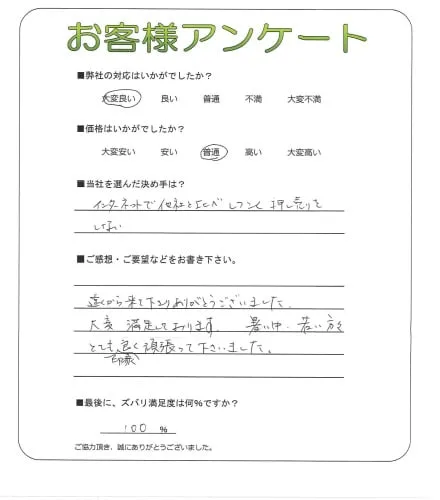 お客様アンケート
■弊社の対応はいかがでしたか?
大変良い 良い 普通 不満 大変不満
■価格はいかがでしたか?
大変安い 安い 普通 高い 大変高い
■当社を選んだ決め手は?
インターネットで他社と比べ しつこく押し売りを
しない
■ご感想・ご要望などをお書き下さい。
遠くから来て下さりありがとうございました。
大変 満足しております。 暑い中、若い方々
とても良く頑張って下さいました。
■最後に、ズバリ満足度は何%ですか?
100 %
ご協力頂き、誠にありがとうございました。